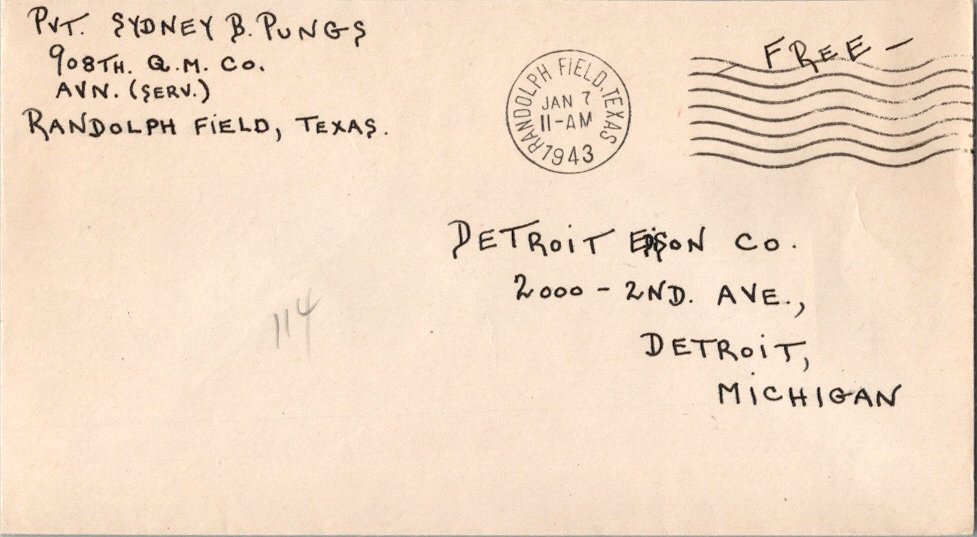 PVT. SYDNEY B. PUNGS
908TH. Q.M. CO.
AVN. (SERV.)
RANDOLPH FIELD, TEXAS.
RANDOLPH FIELD, TEXAS
JAN 7
11-AM
1943
FREE —
DETROIT EDISON CO.
2000 - 2ND. AVE.,
DETROIT,
MICHIGAN
114